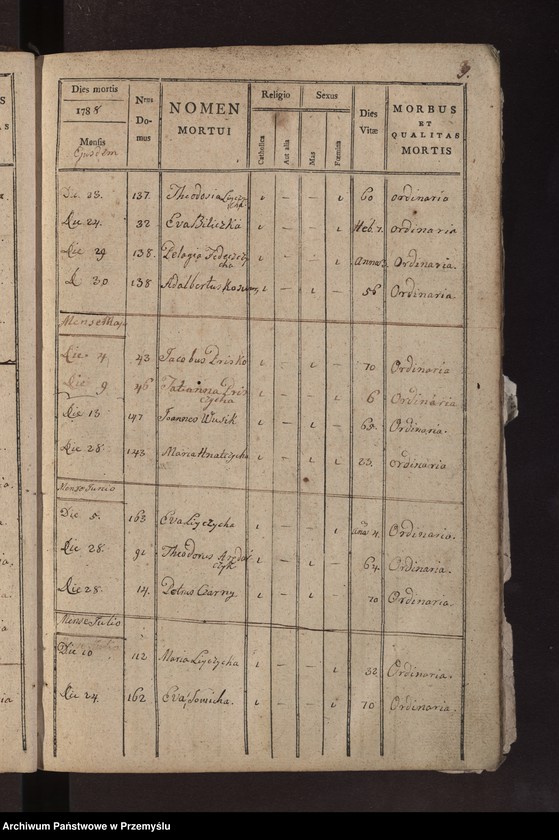 9.
Dies mortis
1788
Mensis
Ejusdem
Nrus Domus
NOMEN MORTUI
Religio
Catholica
Aut alia
Sexus
Mas
Fœmina
Dies Vitæ
MORBUS ET QUALITAS MORTIS
Die 23. 137. Theodosia 1 – – 1 60 ordinaria
Die 24. 32 Eva 1 – – 1 Heb. 1. ordinaria
Die 29 138. Pelagia 1 – – 1 Ordinaria.
D 30 138 Adalbertus 1 – 1 – 56 Ordinaria
Mense Majo
Die 4 43 Jacobus Dzisko 1 – 1 – 70 Ordinaria
Die 9 46 Tatianna 1 – – 1 6 Ordinaria
Die 18 147 Joannes Wusik 1 – 1 – 65. Ordinaria.
Die 28 143 Maria Hnatczycha 1 – 1 1 23. Ordinaria
Mense Junio
Die 5. 163 Eva Lyczycha 1 – – 1 4. Ordinaria.
Die 28. 91 Theodorus 1 – 1 – 64. Ordinaria.
Die 28. 14. Petrus Czarny 1 – 1 – 70 Ordinaria
Mense Julio
Die 10 112 Maria Lyczycha 1 – – 1 32 Ordinaria.
Die 24 162 Eva 1 – – 1 70 Ordinaria.
Archiwum Państwowe w Przemyślu